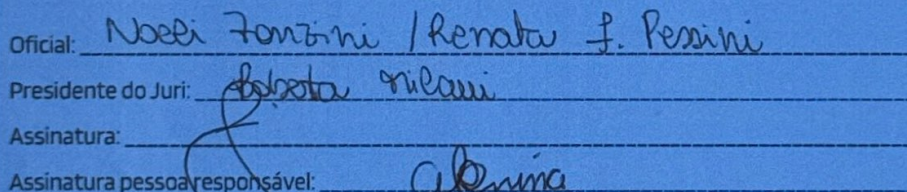 Oficial: Noeli Fonzini / Renata F. Pessini
Presidente do Juri: Roberta Milani
Assinatura:
Assinatura pessoa responsável: